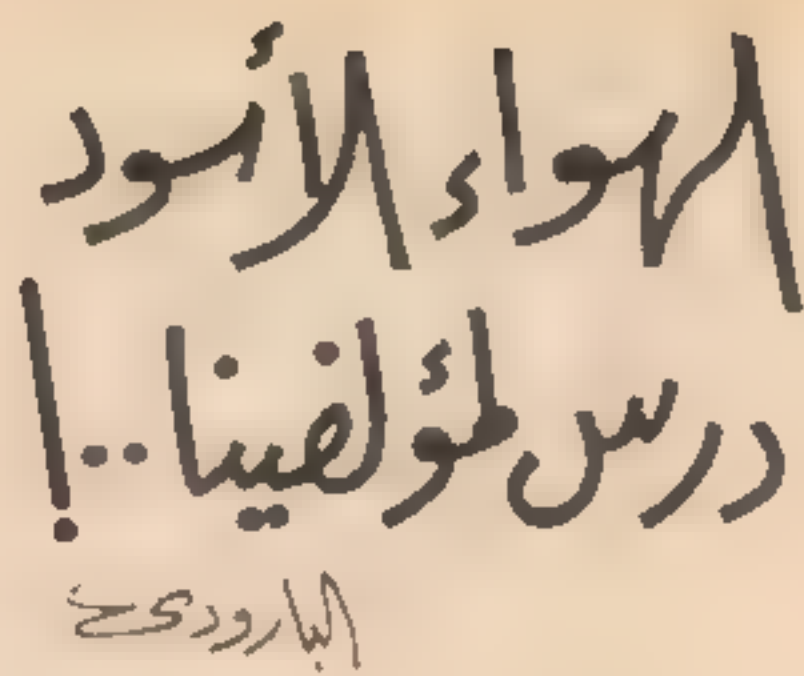 الهواء الأسود
درس لمؤلفينا..!
البارودي